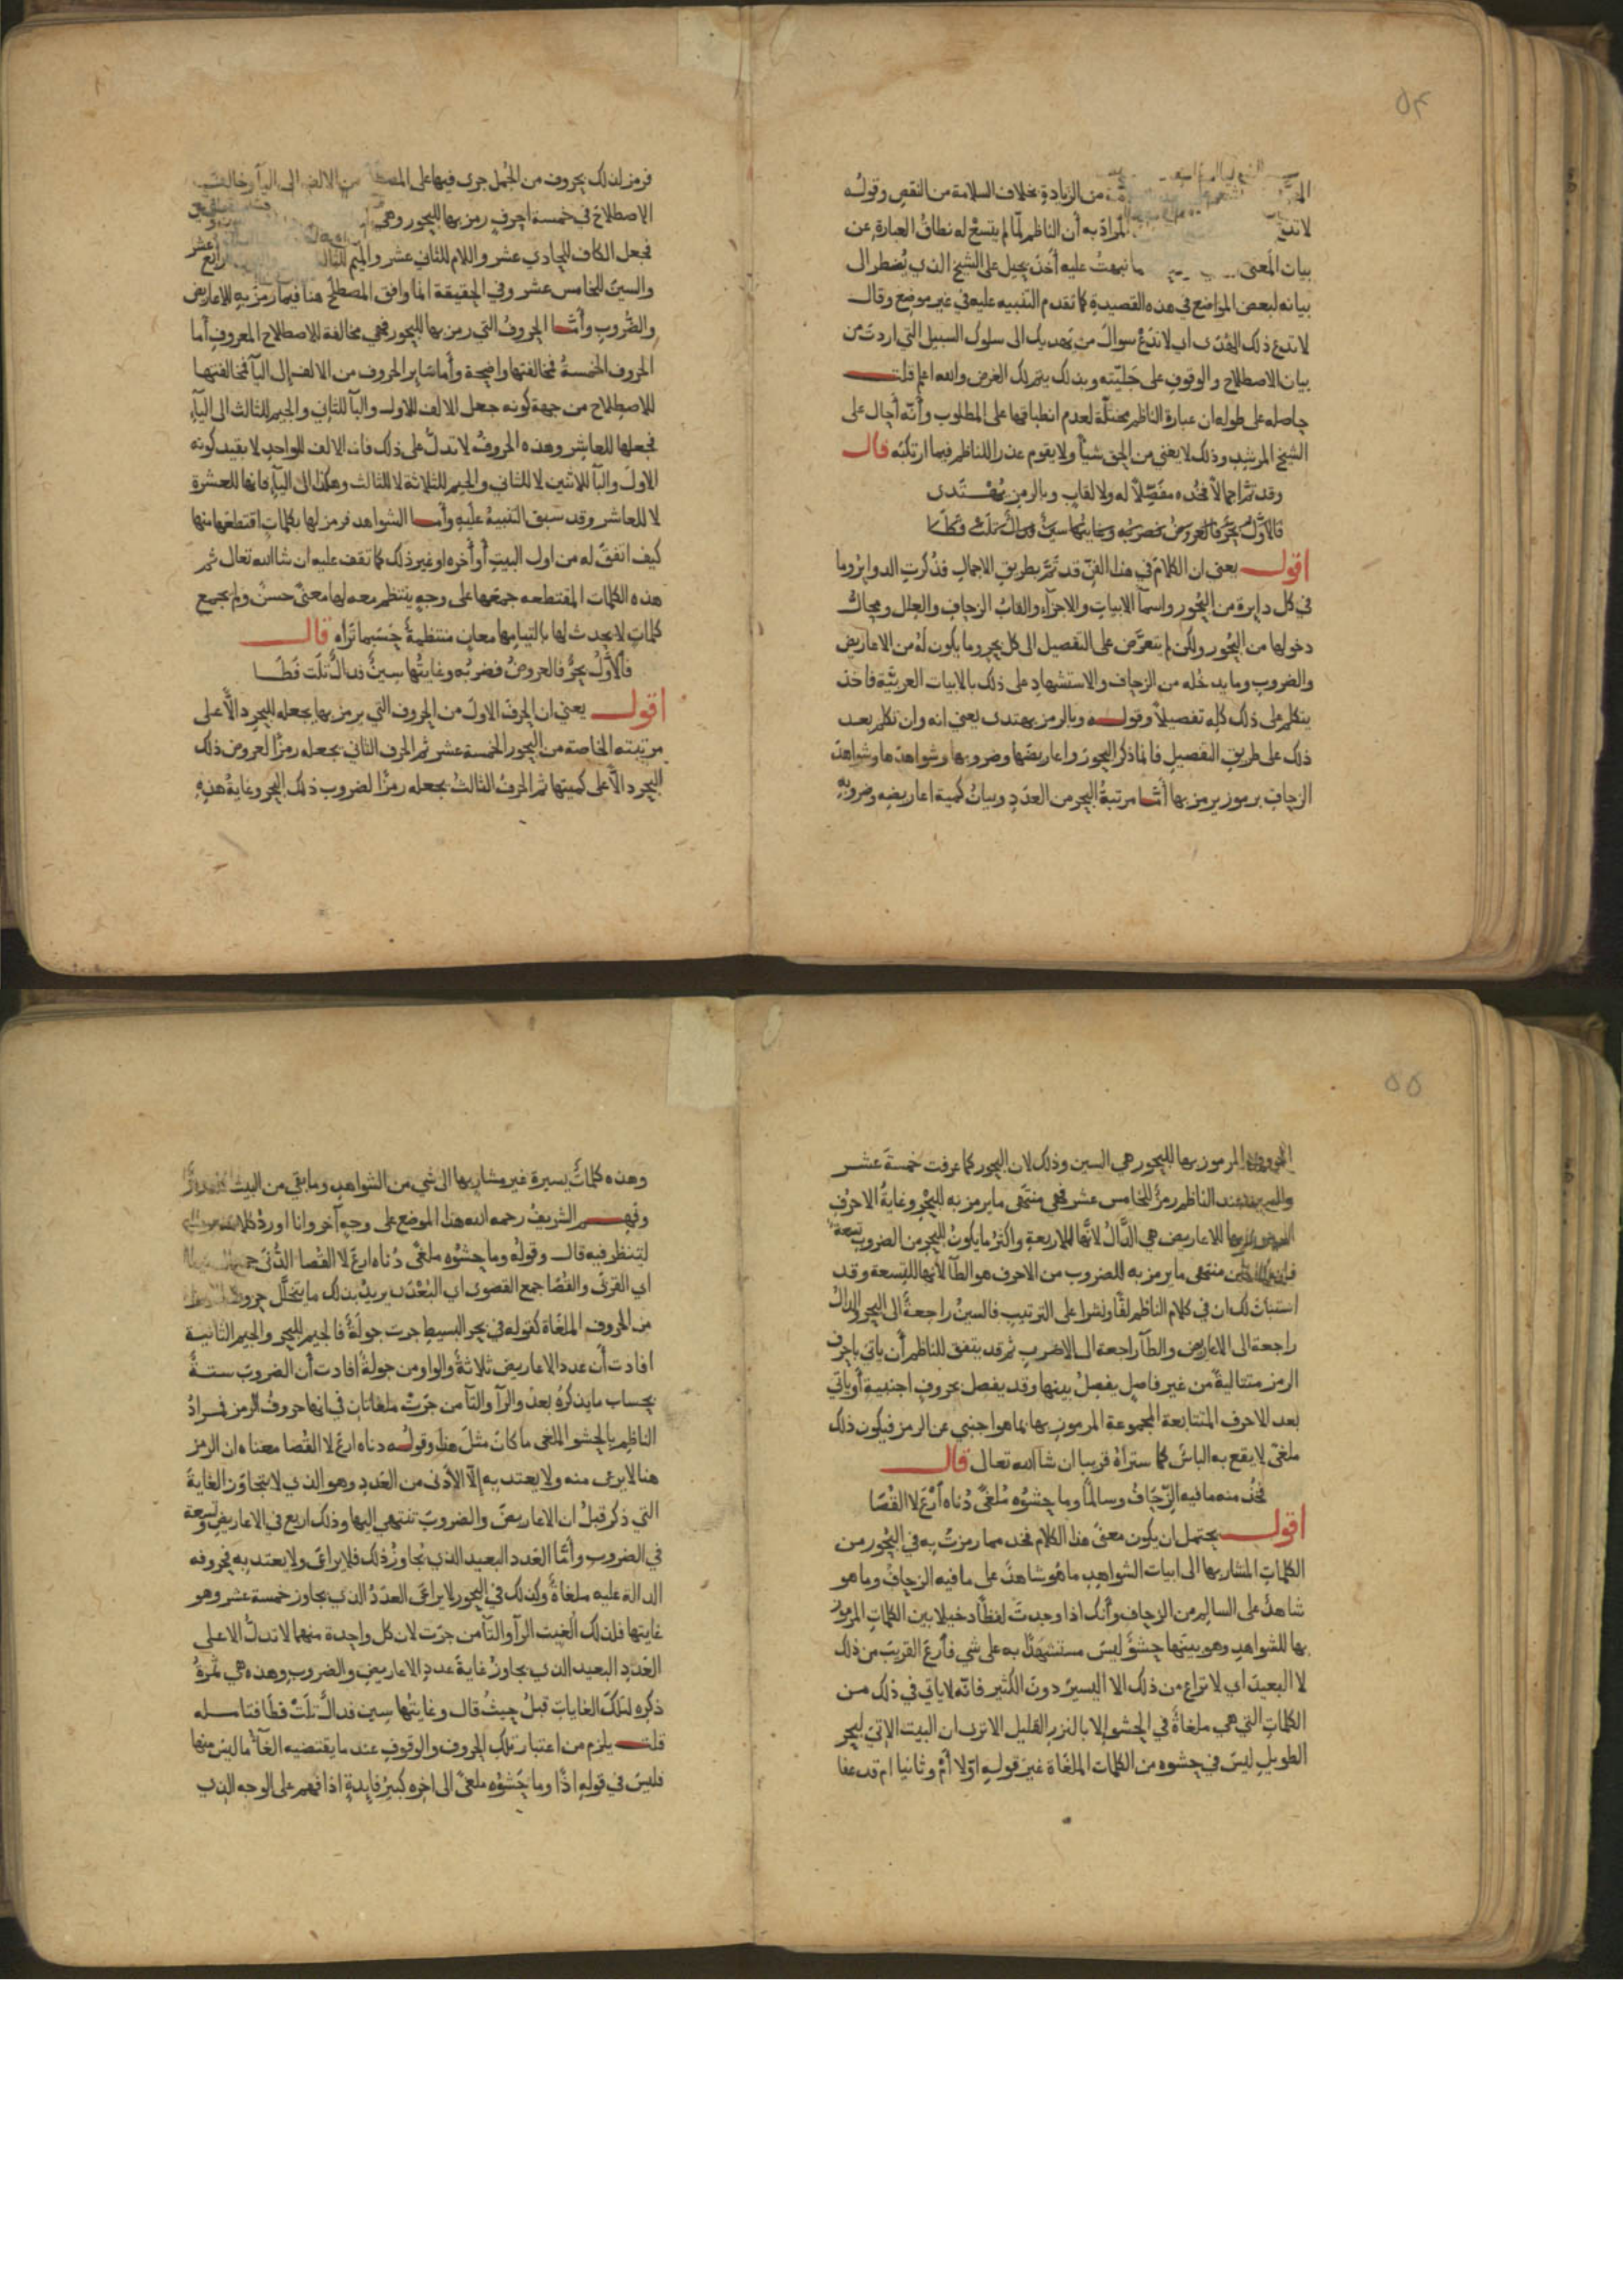 ٥٤
من الزيادة بخلاف السلامة من النقص وقوله
لا تدع المراد به أن الناظم لما لم يتسع له نطاق العبارة عن
بيان المعنى ما نبهت عليه أخذ يحيل على الشيخ الذي يضطر الى
بيانه لبعض المواضع في هذه القصيدة كما تقدم التنبيه عليه في غير موضع وقال
لا تدع ذلك الهدى اي لا تدع سوال من يهديك الى سلوك السبيل التي اردت من
بيان الاصطلاح والوقوف على جليته وبذلك يتم لك الغرض والله اعلم قلت
حاصله على طوله ان عبارة الناظم مختلة لعدم انطباقها على المطلوب وأنه أحال على
الشيخ المرشد وذلك لا يغني من الحق شيأ ولا يقوم عذرا للناظم فيما ارتكبه قال
وقد تم اجمالا فخذه مفصلا له ولالقاب وبالرمز يهتدى
فالاول بحر فالعروض فضربه وغايتها سين فدال تلت فطا
اقول يعني ان الكلام في هذا الفن قد تم بطريق الاجمال فذكرت الدواير وما
في كل دايرة من البحور واسمآ الابيات والاجزآء والقاب الزحاف والعلل ومحال
دخولها من البحور ولكن لم يتعرض على التفصيل الى كل بحر وما يكون له من الاعاريض
والضروب وما يدخله من الزحاف والاستشهاد على ذلك بالابيات العربية فاخذ
يتكلم على ذلك كله تفصيلا وقوله وبالرمز يهتدى يعني انه وان تكلم بعد
ذلك على طريق التفصيل فانما ذكر البحور واعاريضها وضروبها وشواهدها وشواهد
الزحاف برموز يرمز بها أما مرتبة البحر من العدد وبيان كمية اعاريضه وضروبه
فرمز لذلك بحروف من الجمل جرى فيها على المصطلح من الالف الى اليآ وخالف
الاصطلاح في خمسة احرف رمز بها للبحور وهي
فجعل الكاف للحادي عشر واللام للثاني عشر والميم للثالث رابع عشر
والسين للخامس عشر وفي الحقيقة انما وافق المصطلح هنا فيما رمز به للاعاريض
والضروب وأما الحروف التي رمز بها للبحور فهي مخالفة للاصطلاح المعروف أما
الحروف الخمسة فمخالفتها واضحة وأما ساير الحروف من الالف إلى اليآ فمخالفتها
للاصطلاح من جهة كونه جعل الالف للاول والبآ للثاني والجيم للثالث الى اليآء
فجعلها للعاشر وهذه الحروف لا تدل على ذلك فان الالف للواحد لا بقيد كونه
الاول والبآ للاثنين لا للثاني والجيم للثلاثة لا للثالث وهكذا الى اليآء فانها للعشرة
لا للعاشر وقد سبق التنبيه عليه وأما الشواهد فرمز لها بكلمات اقتطعها منها
كيف اتفق له من اول البيت أو آخره او غير ذلك كما تقف عليه ان شاالله تعالى ثم
هذه الكلمات المقتطعه جمعها على وجه ينتظم معه لها معنى حسن ولم يجمع
كلمات لا يحدث لها بالتيامها معان منتظمة حسبما تراه قال
فالاول بحر فالعروض فضربه وغايتها سين فدال تلت فطا
اقول يعني ان الحرف الاول من الحروف التي يرمز بها يجعله للبحر دالا على
مرتبته الخاصة من البحور الخمسة عشر ثم الحرف الثاني يجعله رمزا لعروض ذلك
البحر دالا على كميتها ثم الحرف الثالث يجعله رمزا لضروب ذلك البحر وغاية هذه
٥٥
الحروف المرموز بها للبحور هي السين وذلك لان البحور كما عرفت خمسة عشر
والسين عند الناظم رمز للخامس عشر فهي منتهى ما يرمز به للبحر وغاية الاحرف
المرموز بها للاعاريض هي الدال لانها للاربعة واكثر ما يكون للبحر من الضروب تسعة
منتهى ما يرمز به للضروب من الاحرف هو الطآ لأنها للتسعة وقد
استبان لك ان في كلام الناظم لفا ونشرا على الترتيب فالسين راجعة الى البحر والدال
راجعة الى الاعاريض والطآ راجعة الى الاضرب ثم قد يتفق للناظم أن ياتي باحرف
الرمز متتالية من غير فاصل يفصل بينها وقد يفصل بحروف اجنبية أو ياتي
بعد الاحرف المتتابعة المجموعة المرموز بها بما هو اجنبي عن الرمز فيكون ذلك
ملغى لا يقع به الباس كما ستراه قريبا ان شاالله تعالى قال
فخذ منه ما فيه الزحاف وسالما وما حشوه ملغى دناه ارع لا القصا
اقول يحتمل ان يكون معنى هذا الكلام فخد مما رمزت به في البحور من
الكلمات المشار بها الى ابيات الشواهد ما هو شاهد على ما فيه الزحاف وما هو
شاهد على السالم من الزحاف وأنك اذا وجدت لفظا دخيلا بين الكلمات المرموز
بها للشواهد وهو بينها حشو ليس مستشهدا به على شي فارع القريب من ذلك
لا البعيد اي لا تراع من ذلك الا اليسير دون الكثير فانه لا ياتي في ذلك من
الكلمات التي هي ملغاة في الحشو إلا بالنزر القليل الا ترى ان البيت الاتي لبحر
الطويل ليس في حشوه من الكلمات الملغاة غير قوله اولا أم وثانيا ام قد عفا
وهذه كلمات يسيرة غير مشار بها الى شي من الشواهد وما بقي من البيت
وفهم الشريف رحمه الله هذا الموضع على وجه آخر وانا اورد كلامه
لتنظر فيه قال وقوله وما حشوه ملغى دناه ارع لا القصا الدنى جمع
اي القربى والقصا جمع القصوى اي البعدى يريد بذلك ما يتخلل حروف
من الحروف الملغاة كقوله في بحر البسيط جرت جولة فالجيم للبحر والجيم الثانية
افادت أن عدد الاعاريض ثلاثة والواو من جولة افادت أن الضروب ستة
بحساب ما يذكره بعد والرآ والتآ من جرت ملغاتان في انها حروف الرمز فمراد
الناظم بالحشو الملغى ما كان مثل هذا وقوله دناه ارع لا القصا معناه ان الرمز
هنا لا يرعى منه ولا يعتد به إلا الأدنى من العدد وهو الذي لا يتجاوز الغاية
التي ذكر قبل ان الاعاريض والضروب تنتهي اليها وذلك اربع في الاعاريض وتسعة
في الضروب وأما العدد البعيد الذي يجاوز ذلك فلا يراعى ولا يعتد به فحروفه
الدالة عليه ملغاة وكذلك في البحور لا يراعى العدد الذي يجاوز خمسة عشر وهو
غايتها فلذلك ألغيت الرآ والتآ من جرت لان كل واحدة منهما لا تدل الا على
العدد البعيد الذي يجاوز غاية عدد الاعاريض والضروب وهذه هي ثمرة
ذكره لتلك الغايات قبل حيث قال وغايتها سين فدال تلت فطا فتامله
قلت يلزم من اعتبار تلك الحروف والوقوف عند ما يقتضيه الغآء ما ليس منها
فليس في قوله اذا وما حشوه ملغى الى اخره كبير فايدة اذا فهم على الوجه الذي